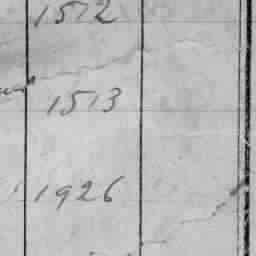 1512
1513
1926